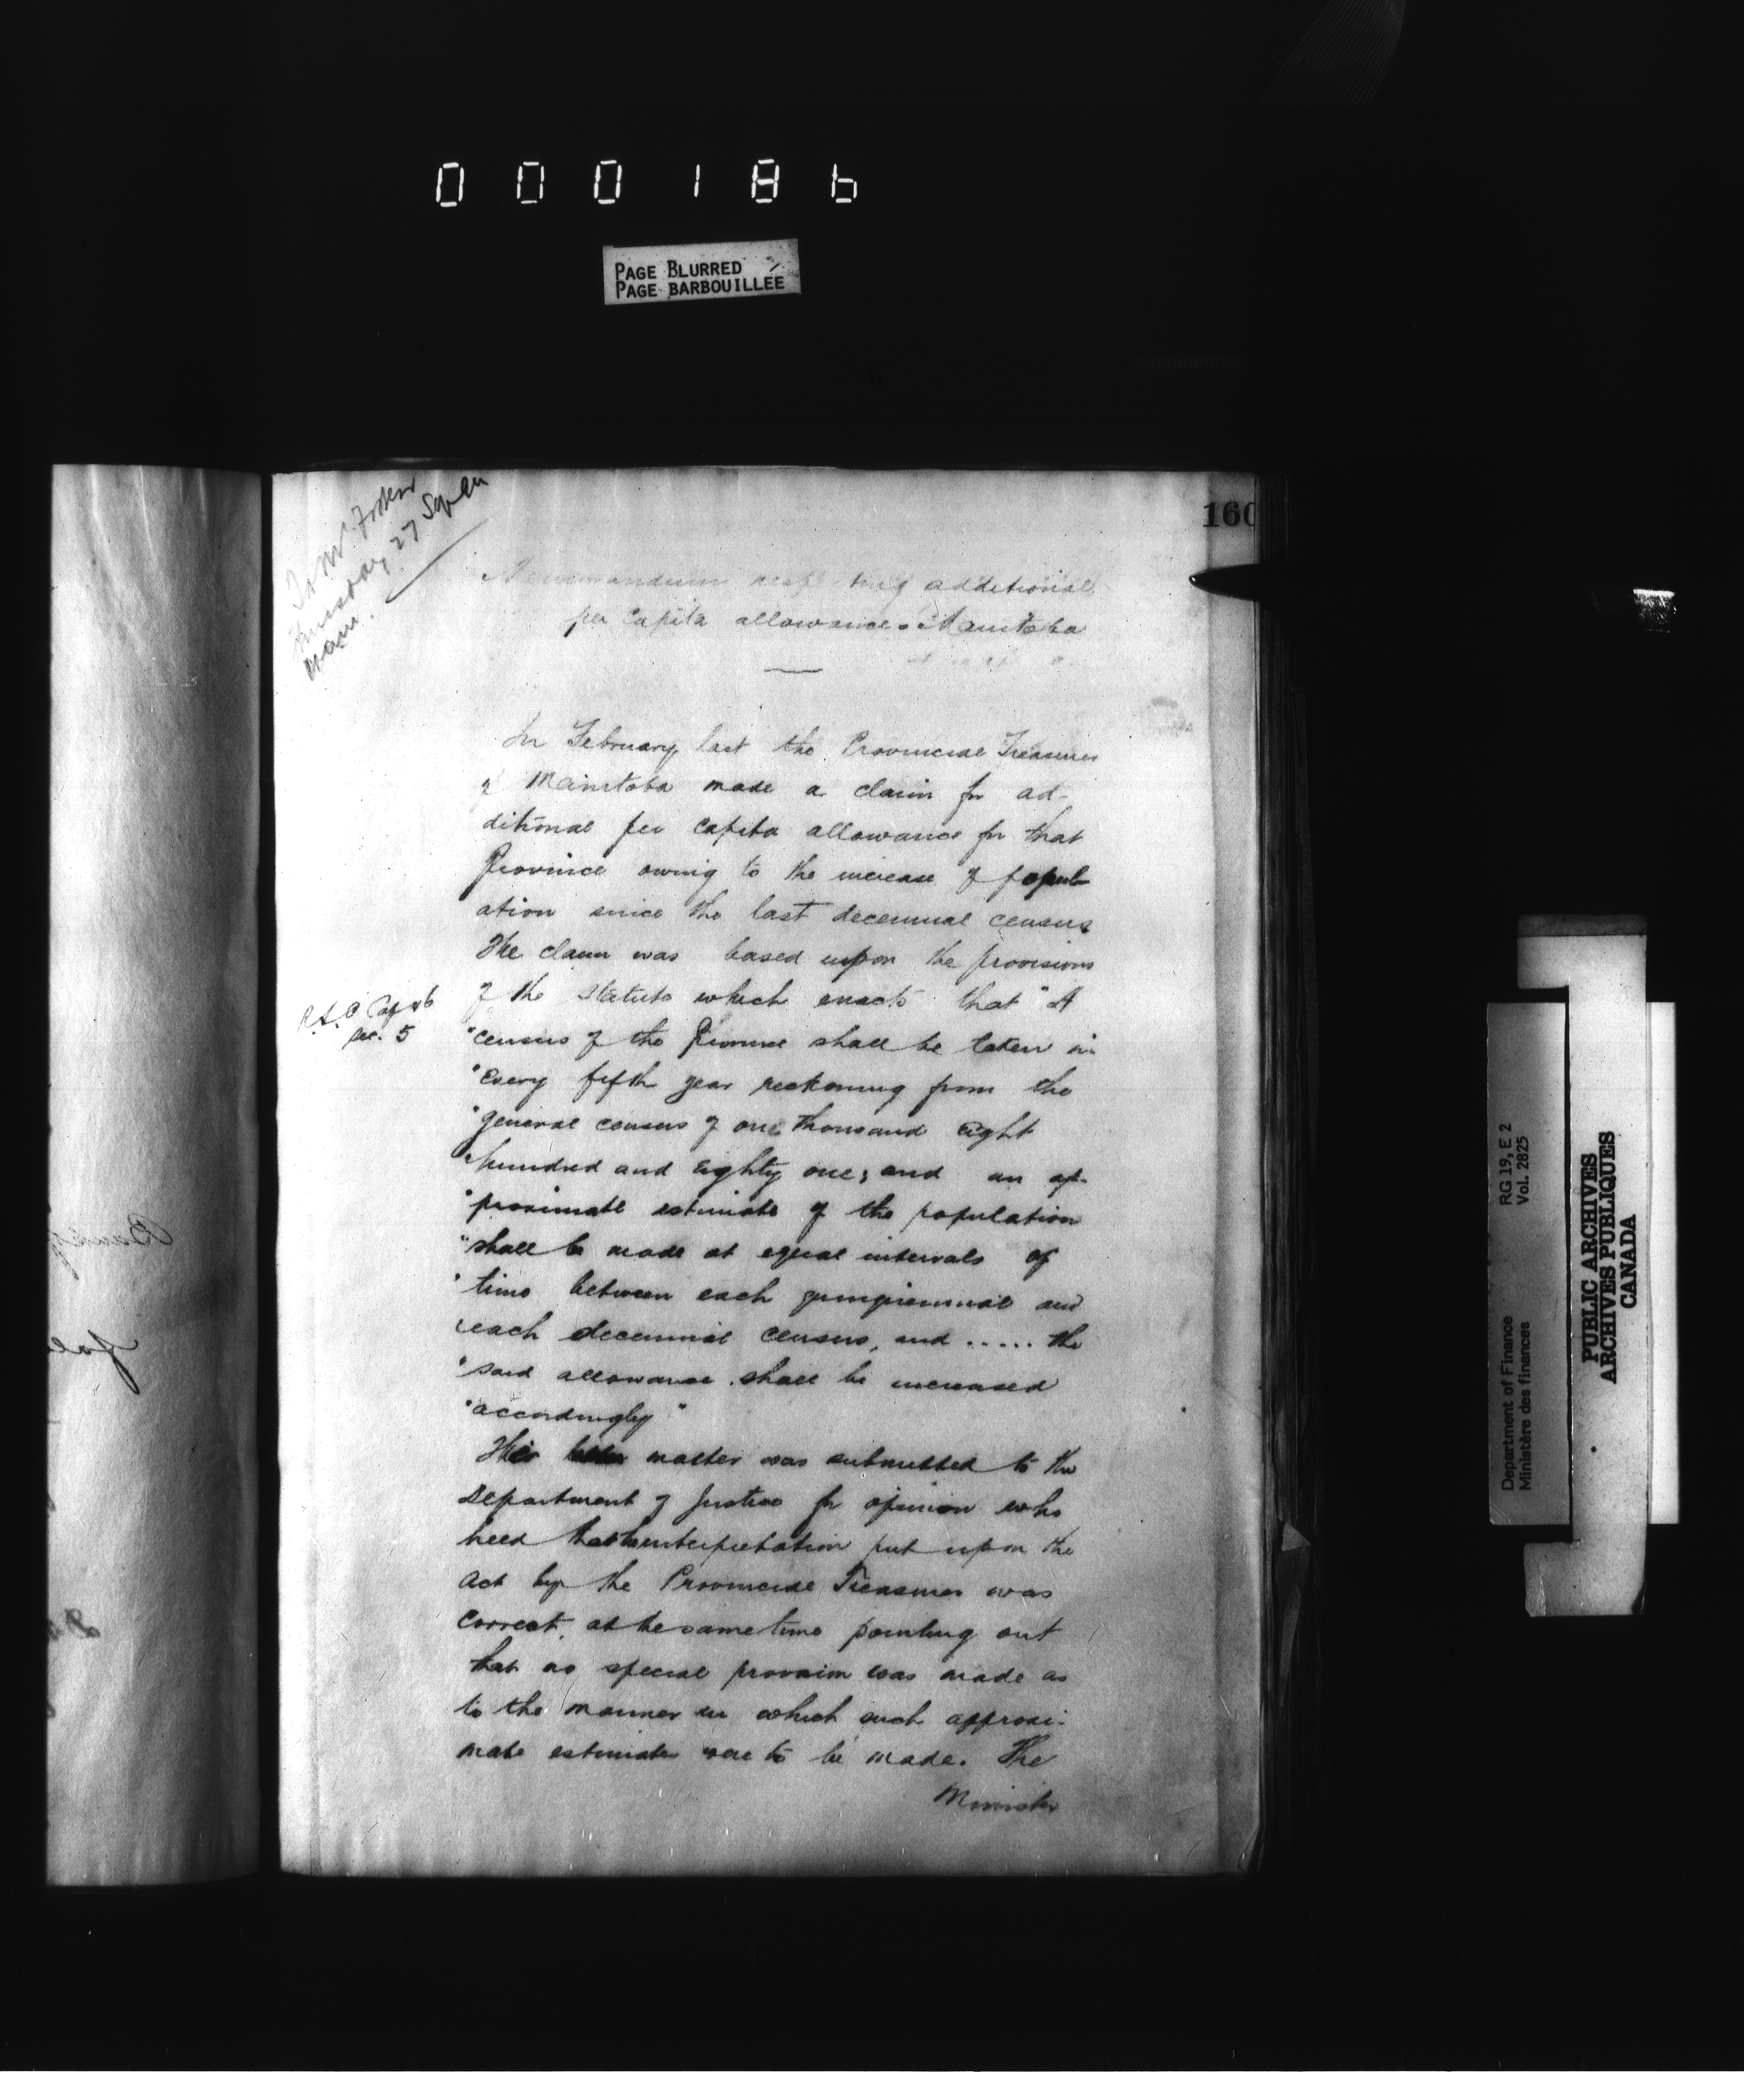 000186
PAGE BLURRED
PAGE BARBOUILLÉE
160
To Mr. Foster
27
Memorandum respecting additional
per Capita allowance. Manitoba
In February last the Provincial Treasurer
of Manitoba made a claim for ad-
ditional per Capita allowance for that
Province owing to the increase of popul
ation since the last decennial census
The claim was based upon the provisions
of the Statute which enacts that "A
R.S.C. Cap 46
Sec. 5
"census of the Province shall be taken in
"every fifth year reckoning from the
"general census of one thousand eight
"hundred and eighty one; and an ap-
"proximate estimate of the population
"shall be made at equal intervals of
"time between each quinquennial and
"each decennial census, and ..... the
"said allowance shall be increased
"accordingly"
This matter was submitted to the
Department of Justice for opinion who
held that the interpretation put upon the
Act by the Provincial Treasurer was
correct, at the same time pointing out
that no special provision was made as
to the manner in which such approxi-
mate estimates were to be made. The
Minister
Department of Finance
Ministère des finances
RG 19, E 2
Vol. 2825
PUBLIC ARCHIVES
ARCHIVES PUBLIQUES
CANADA